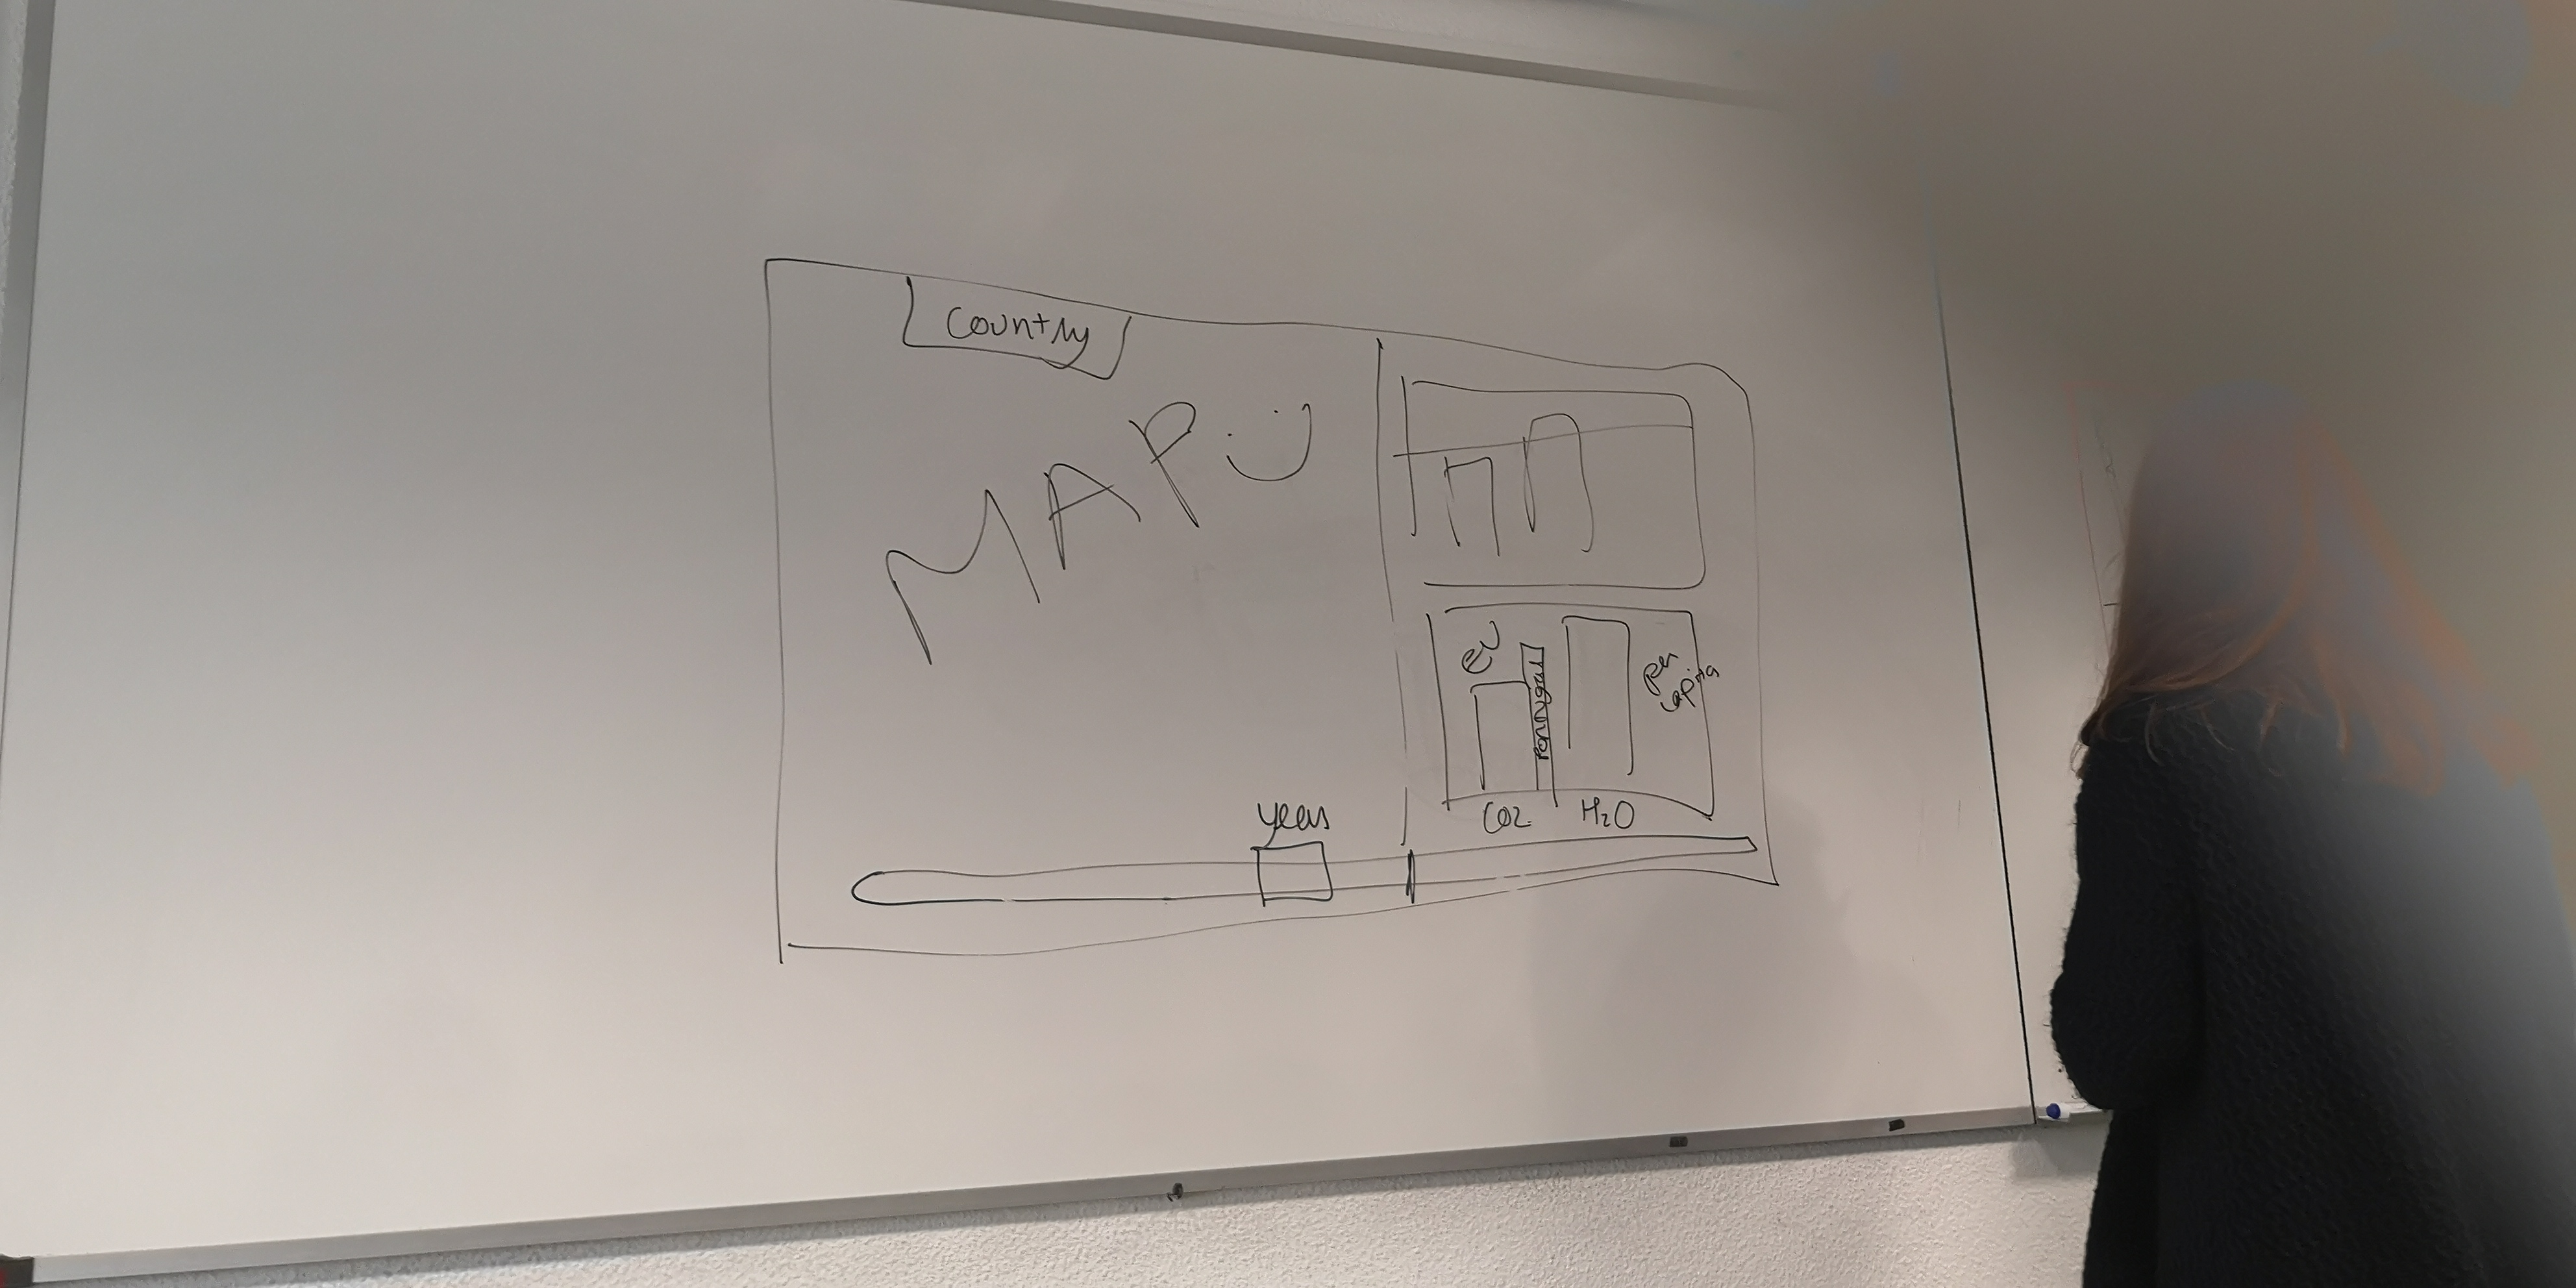 Country
MAP
EU
Portugal
per
capita
CO2
H2O
years